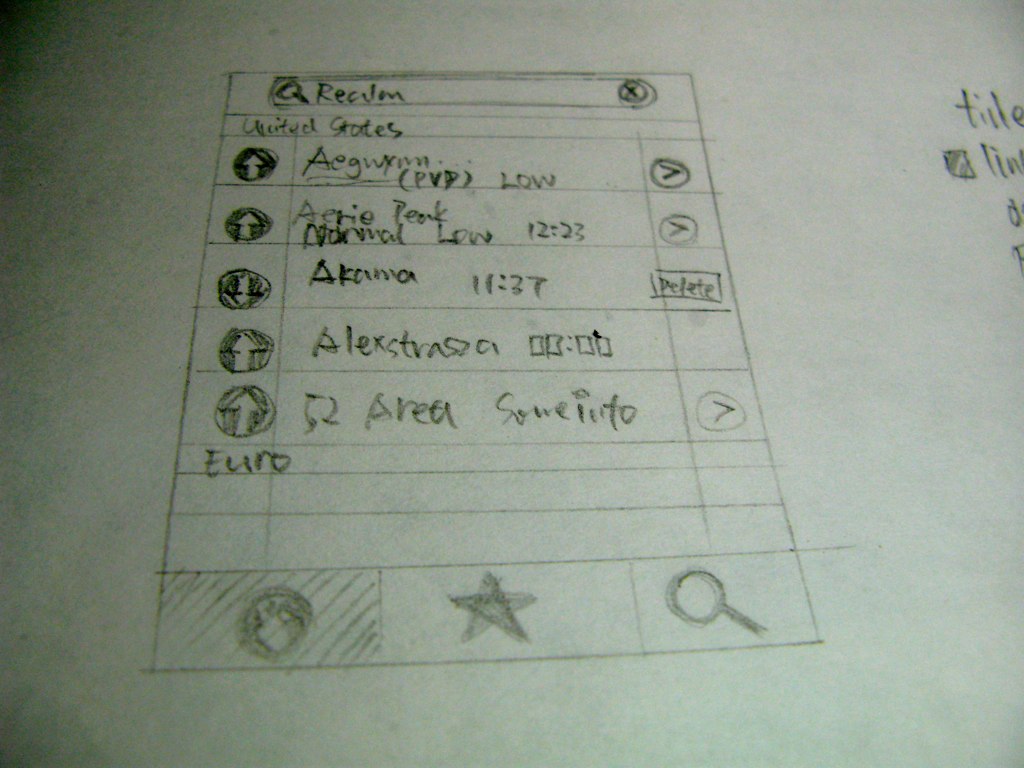 United States
Aegwynn...
(PVP) Low
Aerie Peak
Normal Low 12:23
Akama 11:37 Delete
Alexstrasza 00:00
52 Area Someinfo
Euro
title